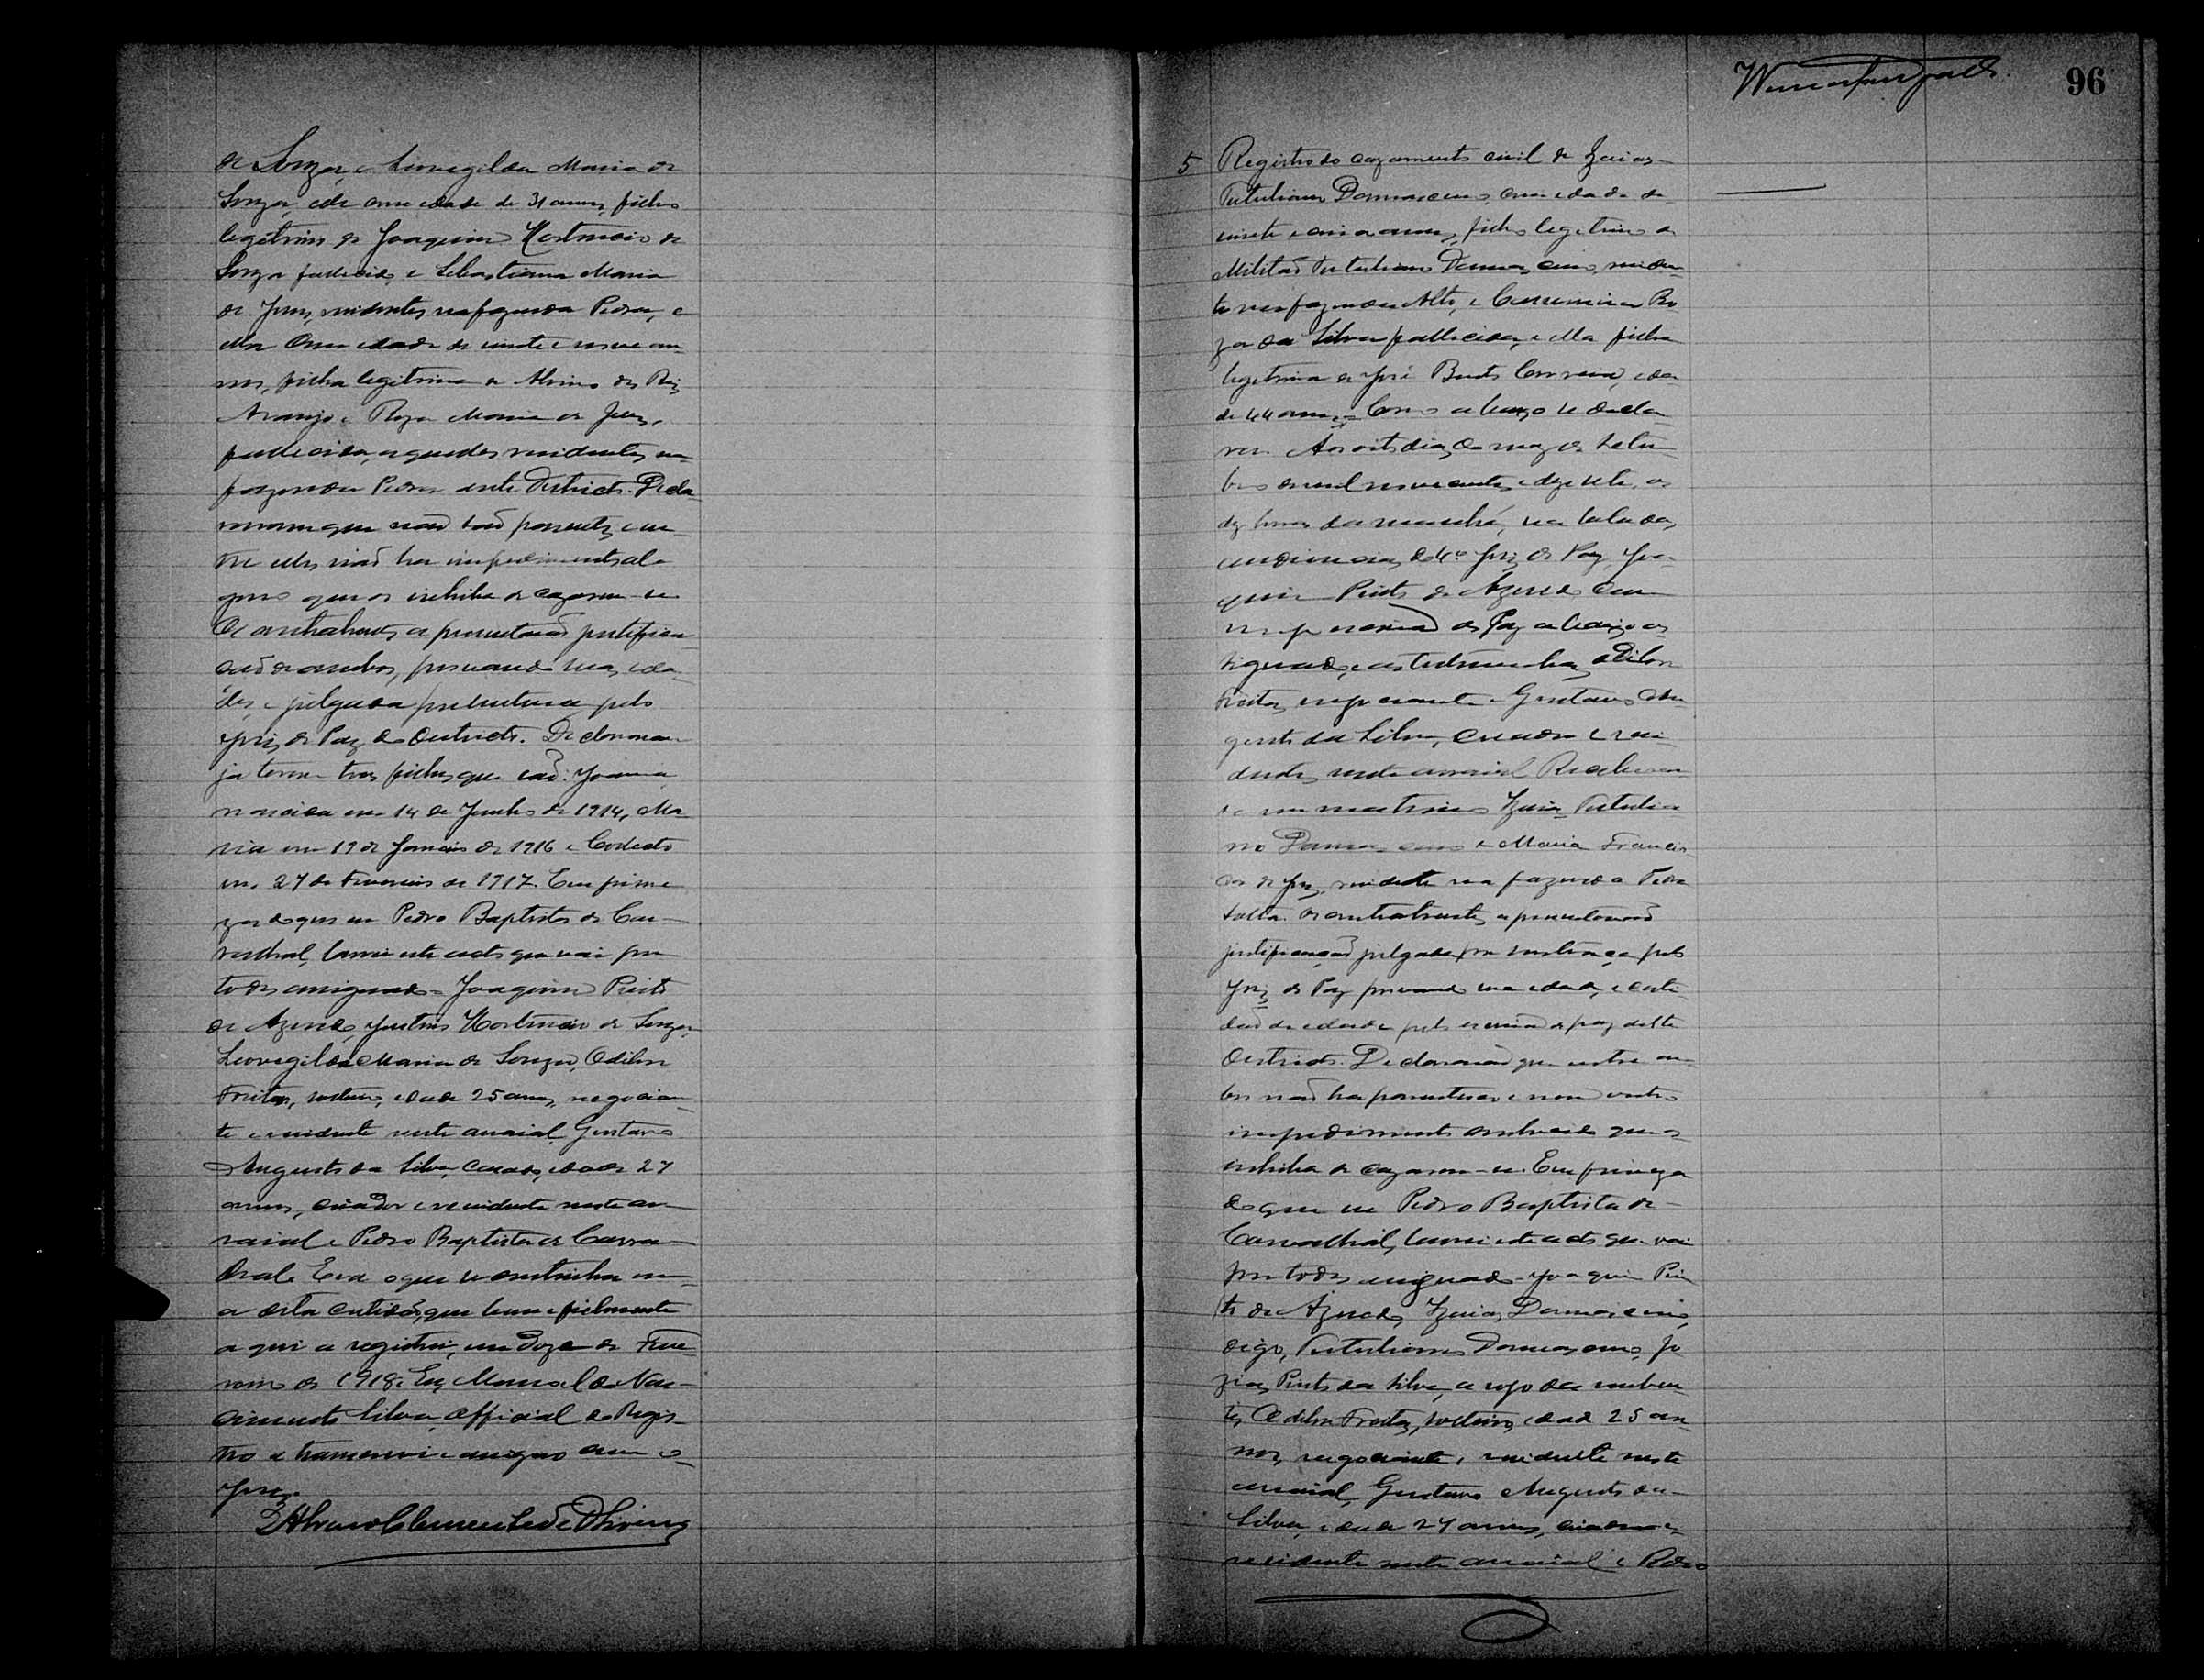 de Souza, e Leovegilda Maria de
Souza, elle com edade de 31 annos, filho
legitimo de Joaquim de
Souza fallecido, e Sebastianna Maria
de Jesus, residentes na fazenda Pedra, e
ella com edade de vinte e nove an-
nos, filha legitima de dos Reis
Araujo e Roza Maria de Jesus,
fallecida, aquelles residentes na
fazenda Pedra deste Districto. Decla-
raram que não são parentes e en-
tre elles não ha impedimento al-
gum que os inhiba de cazarem-se
Os contrahentes apresentaram justifica-
ção de ambos, provando suas eda-
des, e julgada por sentença pelo
Juiz de Paz do Districto. Declararam
já terem tres filhos que são: Joanna
nascida em 14 de Junho de 1914, Ma-
ria em 19 de Janeiro de 1916 e
em 27 de Fevereiro de 1917. Em firme-
za do que eu Pedro Baptista de Car-
valhal, lavrei este acto que vai por
todos assignado = Joaquim Pinto
de Azevedo, de Souza,
Leovegilda Maria de Souza, Odilon
Freitas, solteiro, edade 25 annos, negocian-
te e residente neste arraial, Gustavo
Augusto da Silva, casado, edade 27
annos, criador e residente neste ar-
raial e Pedro Baptista de Carva-
lhal. Era o que se continha em
a dita certidão, que bem e fielmente
aqui a registrei, em doze de Feve-
reiro de 1918. Eu, Manoel do Nas-
cimento Silva, Official do Regis-
tro a transcrevi e assigno com o
Juiz.
Alvaro Clemente de Oliveira
96
5 Registro do cazamento civil de Izaias
Tertuliano Damasceno, com edade de
vinte e annos, filho legitimo de
Militão Tertuliano Damasceno, residen-
te na fazenda Alto, e Ro-
za da Silva fallecida, e ella filha
legitima de José Bento Correia, eda-
de 44 annos = Como abaixo se decla-
ra. Aos oito dias do mez de
bro de mil novecentos e dezesete, as
dez horas da manhã, na sala das
audiencias do 4º Juiz de Paz, Joa-
quim Pinto de Azevedo com-
migo escrivão de Paz abaixo as-
signado, e as testemunhas Odilon
Freitas, negociante e Gustavo Au-
gusto da Silva, criador e resi-
dentes neste arraial Receberam-
se em matrimonio Izaias Tertulia-
no Damasceno e Maria Francis-
ca de Jesus, residente na fazenda Pedra
Os contrahentes apresentaram
justificação julgada por sentença pelo
Juiz de Paz provando sua edade, e certi-
dão de edade pelo escrivão de paz deste
Districto. Declararam que entre am-
bos não ha parentesco e nem outro
impedimento conhecido que os
inhiba de cazarem-se. Em firmeza
do que eu Pedro Baptista de
Carvalhal, lavrei este acto que vai
por todos assignado. Joaquim Pin-
to de Azevedo, Izaias Damasceno,
digo, Tertuliano Damasceno, Jo-
zias Pinto da Silva, a rogo da nuben-
te, Odilon Freitas, solteiro, edade 25 an-
nos, negociante, residente neste
arraial, Gustavo Augusto da
Silva, edade 27 annos, criador e
residente neste arraial e Pedro